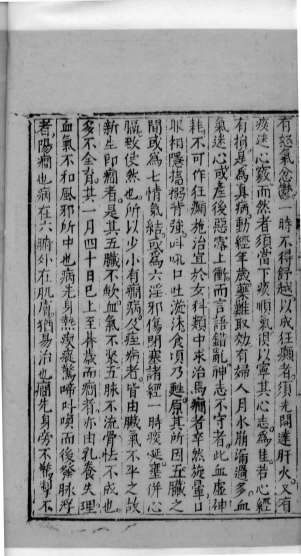 有怒氣忿鬱一時不得舒越以成狂癲者須先開達肝火又有
痰迷心竅而然者須當下痰順氣復以寧其心志為佳若心經
有損是為真病動經年歲藥難取效有婦人月水崩漏過多血
氣迷心或產後惡露上衝而言語錯亂神志不守者此血虛神
耗不可作狂癲施治宜於女科類中求治焉癇者卒然旋暈口
眼相隱搐搦脊強叫吼口吐涎沫食頃乃甦原其所因五臟之
間或為七情氣結或為六淫邪傷閉塞諸經一時痰延壅併心
竅致使然也所以少小有癇病久症病者皆由臟氣不平之故
新生即癇者是其五臟不歛血氣不聚五脉不流骨怯不成也
多不全育其一月四十日已上至朞歲而癇者亦由乳養失理
血氣不和風邪所中也病先身熱瘈瘲驚啼叫喚而後發脉浮
者陽癇也病在六腑外在肌膚猶易治也病先身旁不驚掣不